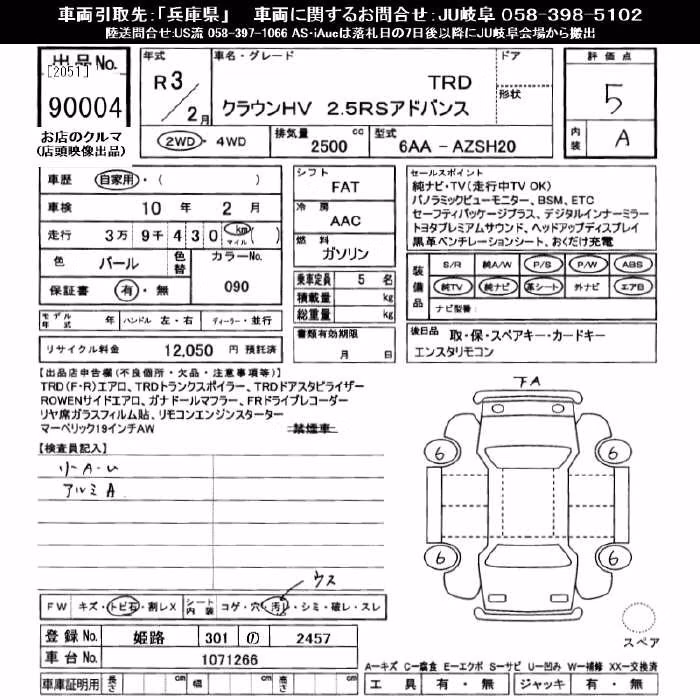 車両引取先：「兵庫県」　車両に関するお問合せ：JU岐阜 058-398-5102
陸送問合せ:US流 058-397-1066 AS-iAucは落札日の7日後以降にJU岐阜会場から搬出
出品No.
[2051]
90004
お店のクルマ
(店頭映像出品)
年式 R3/2月
車名・グレード TRD
クラウンHV 2.5RSアドバンス
ドア
形状
2WD・4WD
排気量 2500 cc
型式 6AA - AZSH20
評価点
5
内装 A
車歴 自家用・( )
車検 10 年 2 月
走行 3万 9千 4 3 0 km マイル ( )
色 パール 色替 カラーNo. 090
保証書 有・無
モデル年式 年 ハンドル 左・右 ディーラー・並行
リサイクル料金 12,050 円 預託済
シフト FAT
冷房 AAC
燃料 ガソリン
乗車定員 5 名
積載量 kg
総重量 kg
書類有効期限
月 日
セールスポイント
純ナビ・TV(走行中TV OK)
パノラミックビューモニター、BSM、ETC
セーフティパッケージプラス、デジタルインナーミラー
トヨタプレミアムサウンド、ヘッドアップディスプレイ
黒革ベンチレーションシート、おくだけ充電
装備品 S/R 純A/W P/S P/W ABS
純TV 純ナビ 革シート 外ナビ エアB
ナビ型番：
後日品 取・保・スペアキー・カードキー
エンスタリモコン
【出品店申告欄(不良個所・欠品・注意事項等)】
TRD(F・R)エアロ、TRDトランクスポイラー、TRDドアスタビライザー
ROWENサイドエアロ、ガナドールマフラー、FRドライブレコーダー
リヤ席ガラスフィルム貼、リモコンエンジンスターター
マーベリック19インチAW 禁煙車
【検査員記入】
リーA-U
アルミA
ウス
FW キズ・トビ石・割レX シート内装 コゲ・穴・汚レ・シミ・破レ・スレ
登録No. 姫路 301 の 2457
車台No. 1071266
車庫証明用 長さ cm 幅 cm 高さ cm
下A
6
6
6
6
スペア
A-キズ C-腐食 E-エクボ S-サビ U-凹み W-補修 XX-交換済
工具 有・無 ジャッキ 有・無